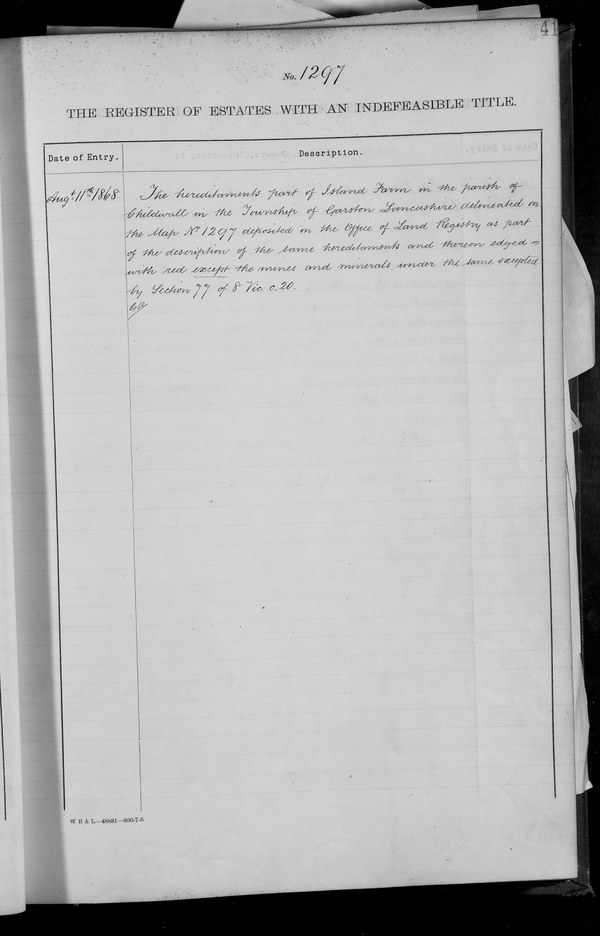 41
No. 1297
THE REGISTER OF ESTATES WITH AN INDEFEASIBLE TITLE.
Date of Entry.
Description.
Augt. 11th 1868
The hereditaments part of Island Farm in the parish of
Childwall in the Township of Garston Lancashire delineated on
the Map No 1297 deposited in the Office of Land Registry as part
of the description of the same hereditaments and thereon edged
with red except the mines and minerals under the same excepted
by Section 77 of 8 Vic c. 20.
W B & L—48881—800-7-